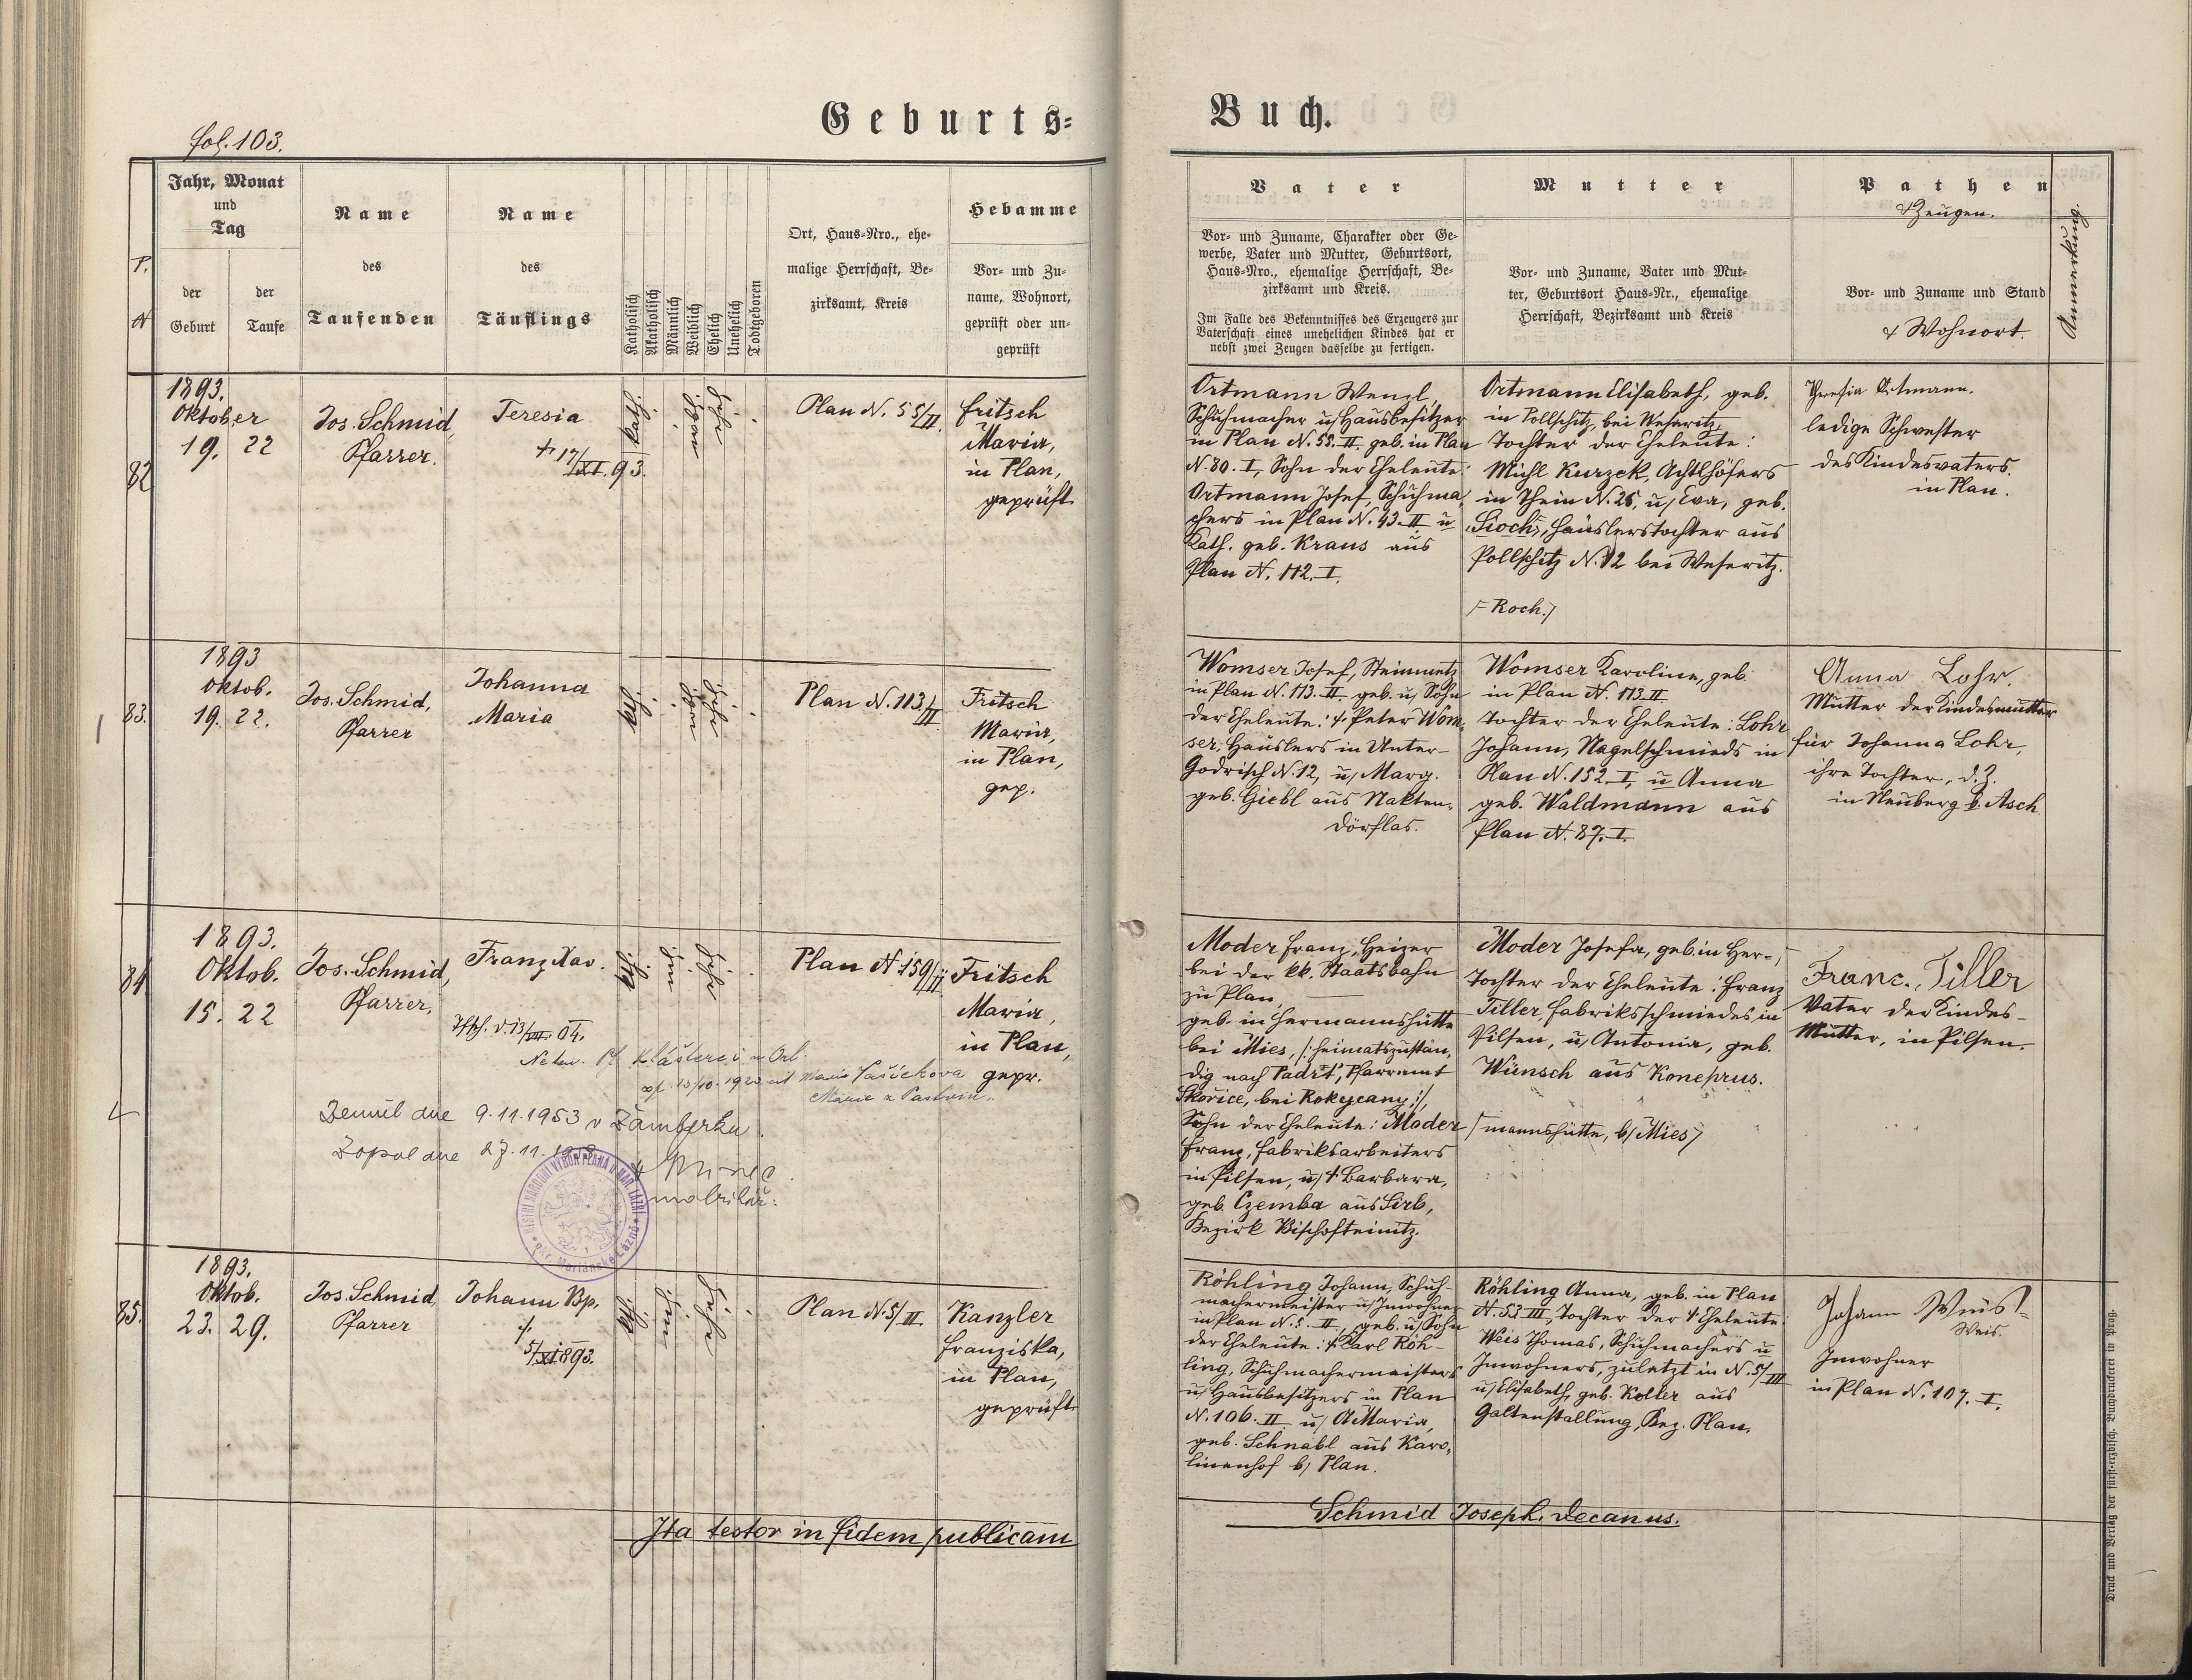 Geburts-
Buch.
fol. 103.
P.
N
Jahr, Monat
und
Tag
der
Geburt
der
Taufe
Name
des
Taufenden
Name
des
Täuflings
Katholisch
Akatholisch
Männlich
Weiblich
Ehelich
Unehelich
Todtgeboren
Ort, Haus-Nro., ehe-
malige Herrschaft, Be-
zirksamt, Kreis
Hebamme
Vor- und Zu-
name, Wohnort,
geprüft oder un-
geprüft
Vater
Vor- und Zuname, Charakter oder Ge-
werbe, Vater und Mutter, Geburtsort,
Haus-Nro., ehemalige Herrschaft, Be-
zirksamt und Kreis.
Im Falle des Bekenntnisses des Erzeugers zur
Vaterschaft eines unehelichen Kindes hat er
nebst zwei Zeugen dasselbe zu fertigen.
Mutter
Vor- und Zuname, Vater und Mut-
ter, Geburtsort Haus-Nr., ehemalige
Herrschaft, Bezirksamt und Kreis
Pathen
& Zeugen.
Vor- und Zuname und Stand
& Wohnort.
Anmerkung.
82
1893.
Oktober
19. 22
Jos. Schmid,
Pfarrer.
Teresia
† 17/XI. 93.
kath.
Plan N. 55/II.
Fritsch
Maria,
in Plan,
geprüft
Ortmann Wenzl,
Schuhmacher u/ Hausbesitzer
in Plan N. 55. II, geb. in Plan
N. 80. I, Sohn der Eheleute:
Ortmann Josef, Schuhma-
chers in Plan N. 43. II u
Kath. geb. Kraus aus
Plan N. 112. I.
Ortmann Elisabeth, geb.
in Pollschitz, bei Weseritz,
Tochter der Eheleute:
Michl Kurzek, Achtlhöfers
in Thein N. 26, u/ Eva, geb.
Häuslerstochter aus
Pollschitz N. 12 bei Weseritz.
/ Roch. /
Theresia Ortmann.
ledige Schwester
des Kindesvaters.
in Plan.
83.
1893
Oktob.
19. 22.
Jos. Schmid,
Pfarrer
Johanna
Maria
Plan N. 113/II
Fritsch
Maria,
in Plan,
gep.
Womser Josef, Steinmetz
in Plan N. 113. II geb. u/ Sohn
der Eheleute: † Peter Wom-
ser, Häuslers in Unter-
Godrisch N. 12, u/ Marg.
geb. Giebl aus Nakten-
dörflas.
Womser Karoline, geb.
in Plan N. 113. II
Tochter der Eheleute: Lohr
Johann, Nagelschmieds in
Plan N. 152. I, u Anna
geb. Waldmann aus
Plan N. 87. I.
Anna Lohr.
Mutter der Kindesmutter
für Johanna Lohr,
ihre Tochter, d. Z.
in Neuberg b. Asch
84
1893.
Oktob.
15. 22
Jos. Schmid,
Pfarrer,
Franz Xav.
04.
1920
Zemřel dne 9.11.1953 v Žamberku.
Zápal dne 27.11.
matrikář:
MÍSTNÍ NÁRODNÍ VÝBOR PLANÁ U MAR. LÁZNÍ
okr. Mariánské Lázně
Plan N. 159/II
Fritsch
Maria,
in Plan,
gepr.
Moder Franz, Heizer
bei der kk. Staatsbahn
zu Plan,
geb. in Hermannshütte
bei Mies, /: heimatszustän-
dig nach Padrt, Pfarramt
Skořice, bei Rokycany :/,
Sohn der Eheleute: Moder
Franz, Fabriksarbeiters
in Pilsen, u/ † Barbara,
geb. Czemba aus Sirb,
Bezirk Bischofteinitz.
Moder Josefa, geb. in Her-/
Tochter der Eheleute: Franz
Tiller, Fabriksschmiedes in
Pilsen, u/ Antonia, geb.
Wünsch aus Koneprus.
/ mannshütte, b/ Mies /
Franc. Tiller
Vater der Kindes-
Mutter, in Pilsen.
85.
1893.
Oktob.
23. 29.
Jos. Schmid,
Pfarrer
Johann Bp.
†
5/XI 893.
Plan N. 5/II.
Kanzler
Franziska,
in Plan,
geprüft
Röhling Johann, Schuh-
machermeister u/ Inwohner
in Plan N. 5. II, geb. u/ Sohn
der Eheleute: † Karl Röh-
ling, Schuhmachermeisters
u/ Hausbesitzers in Plan
N. 106. II u/ A. Maria,
geb. Schnabl aus Karo-
linenhof b/ Plan.
Röhling Anna, geb. in Plan
N. 53 III, Tochter der † Eheleute:
Weis Thomas, Schuhmachers u
Inwohners, zuletzt in N. 5/III
u/ Elisabeth, geb. Koller aus
Galtenstallung, Bez. Plan.
Johann Weis
Weis.
Inwohner
in Plan N. 107. I.
Ita testor in fidem publicam
Schmid Joseph. decanus.
Druck und Verlag der fürst-erzbisch. Buchdruckerei in Prag.